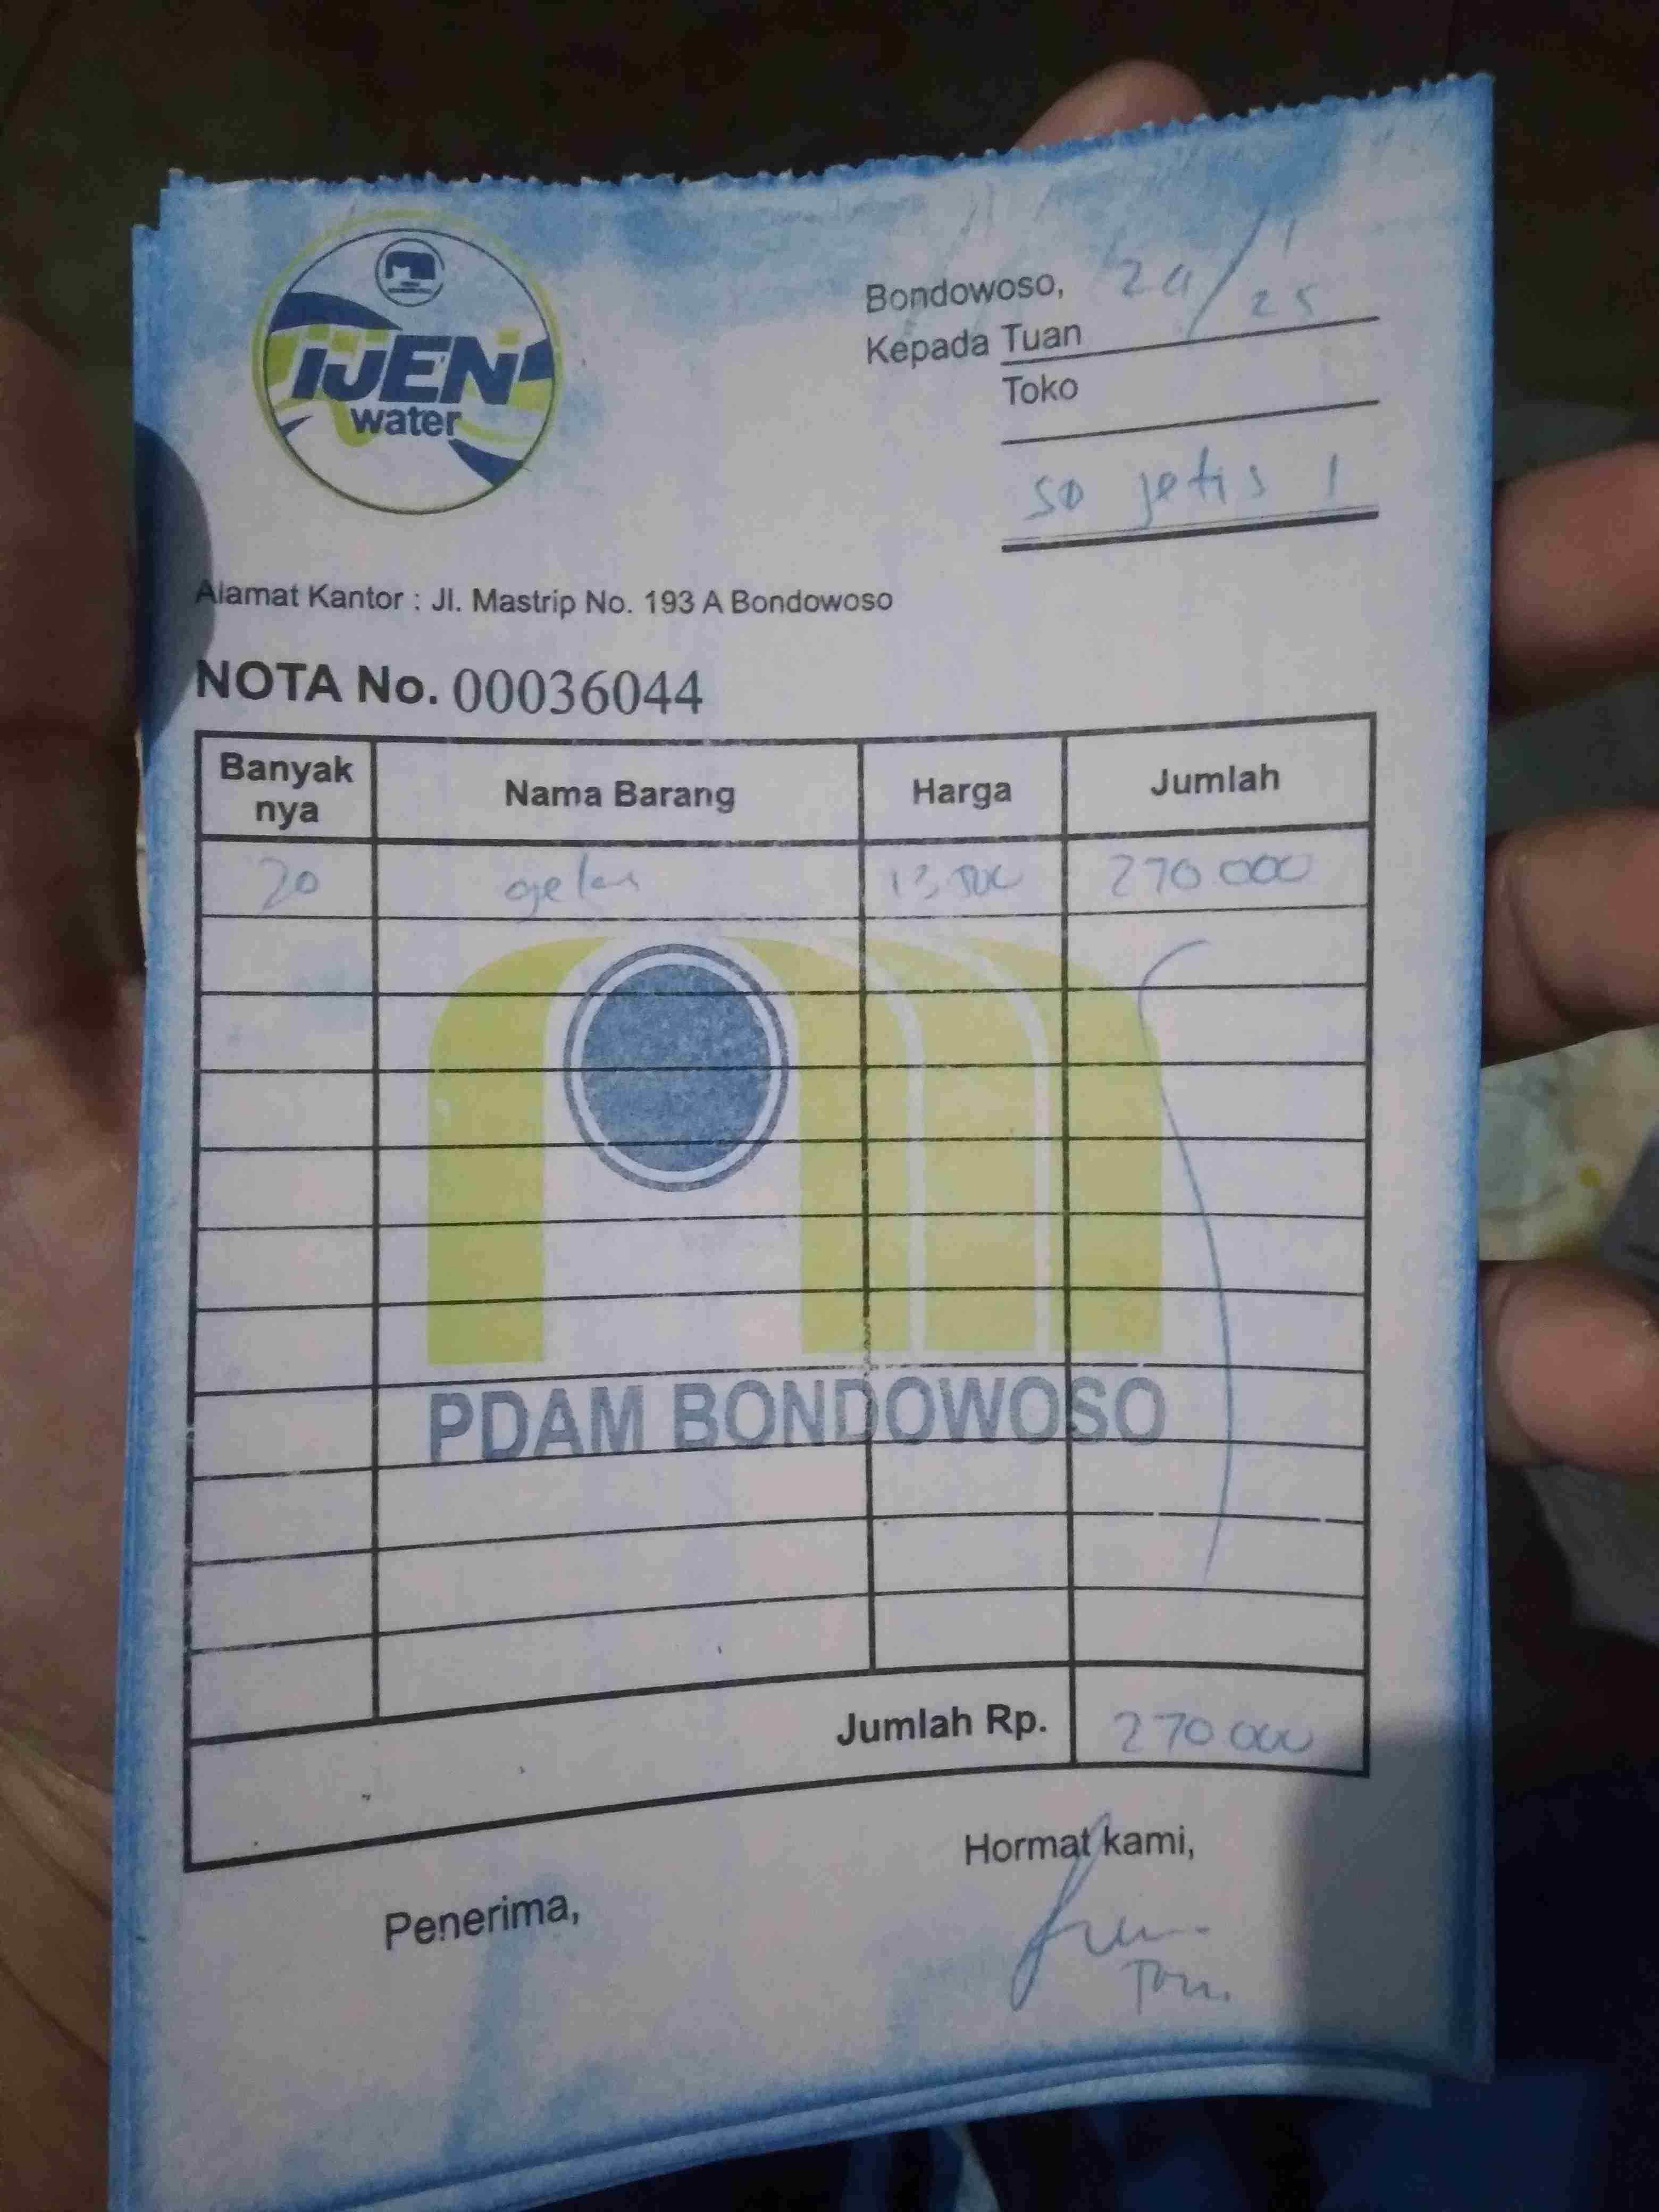 IJEN
water
Bondowoso, 24/25
Kepada Tuan
Toko
SD jetis 1
Alamat Kantor : Jl. Mastrip No. 193 A Bondowoso
NOTA No. 00036044
Banyak nya Nama Barang Harga Jumlah
20 gelas 13.500 270 000
PDAM BONDOWOSO
Jumlah Rp. 270 000
Hormat kami,
Penerima,